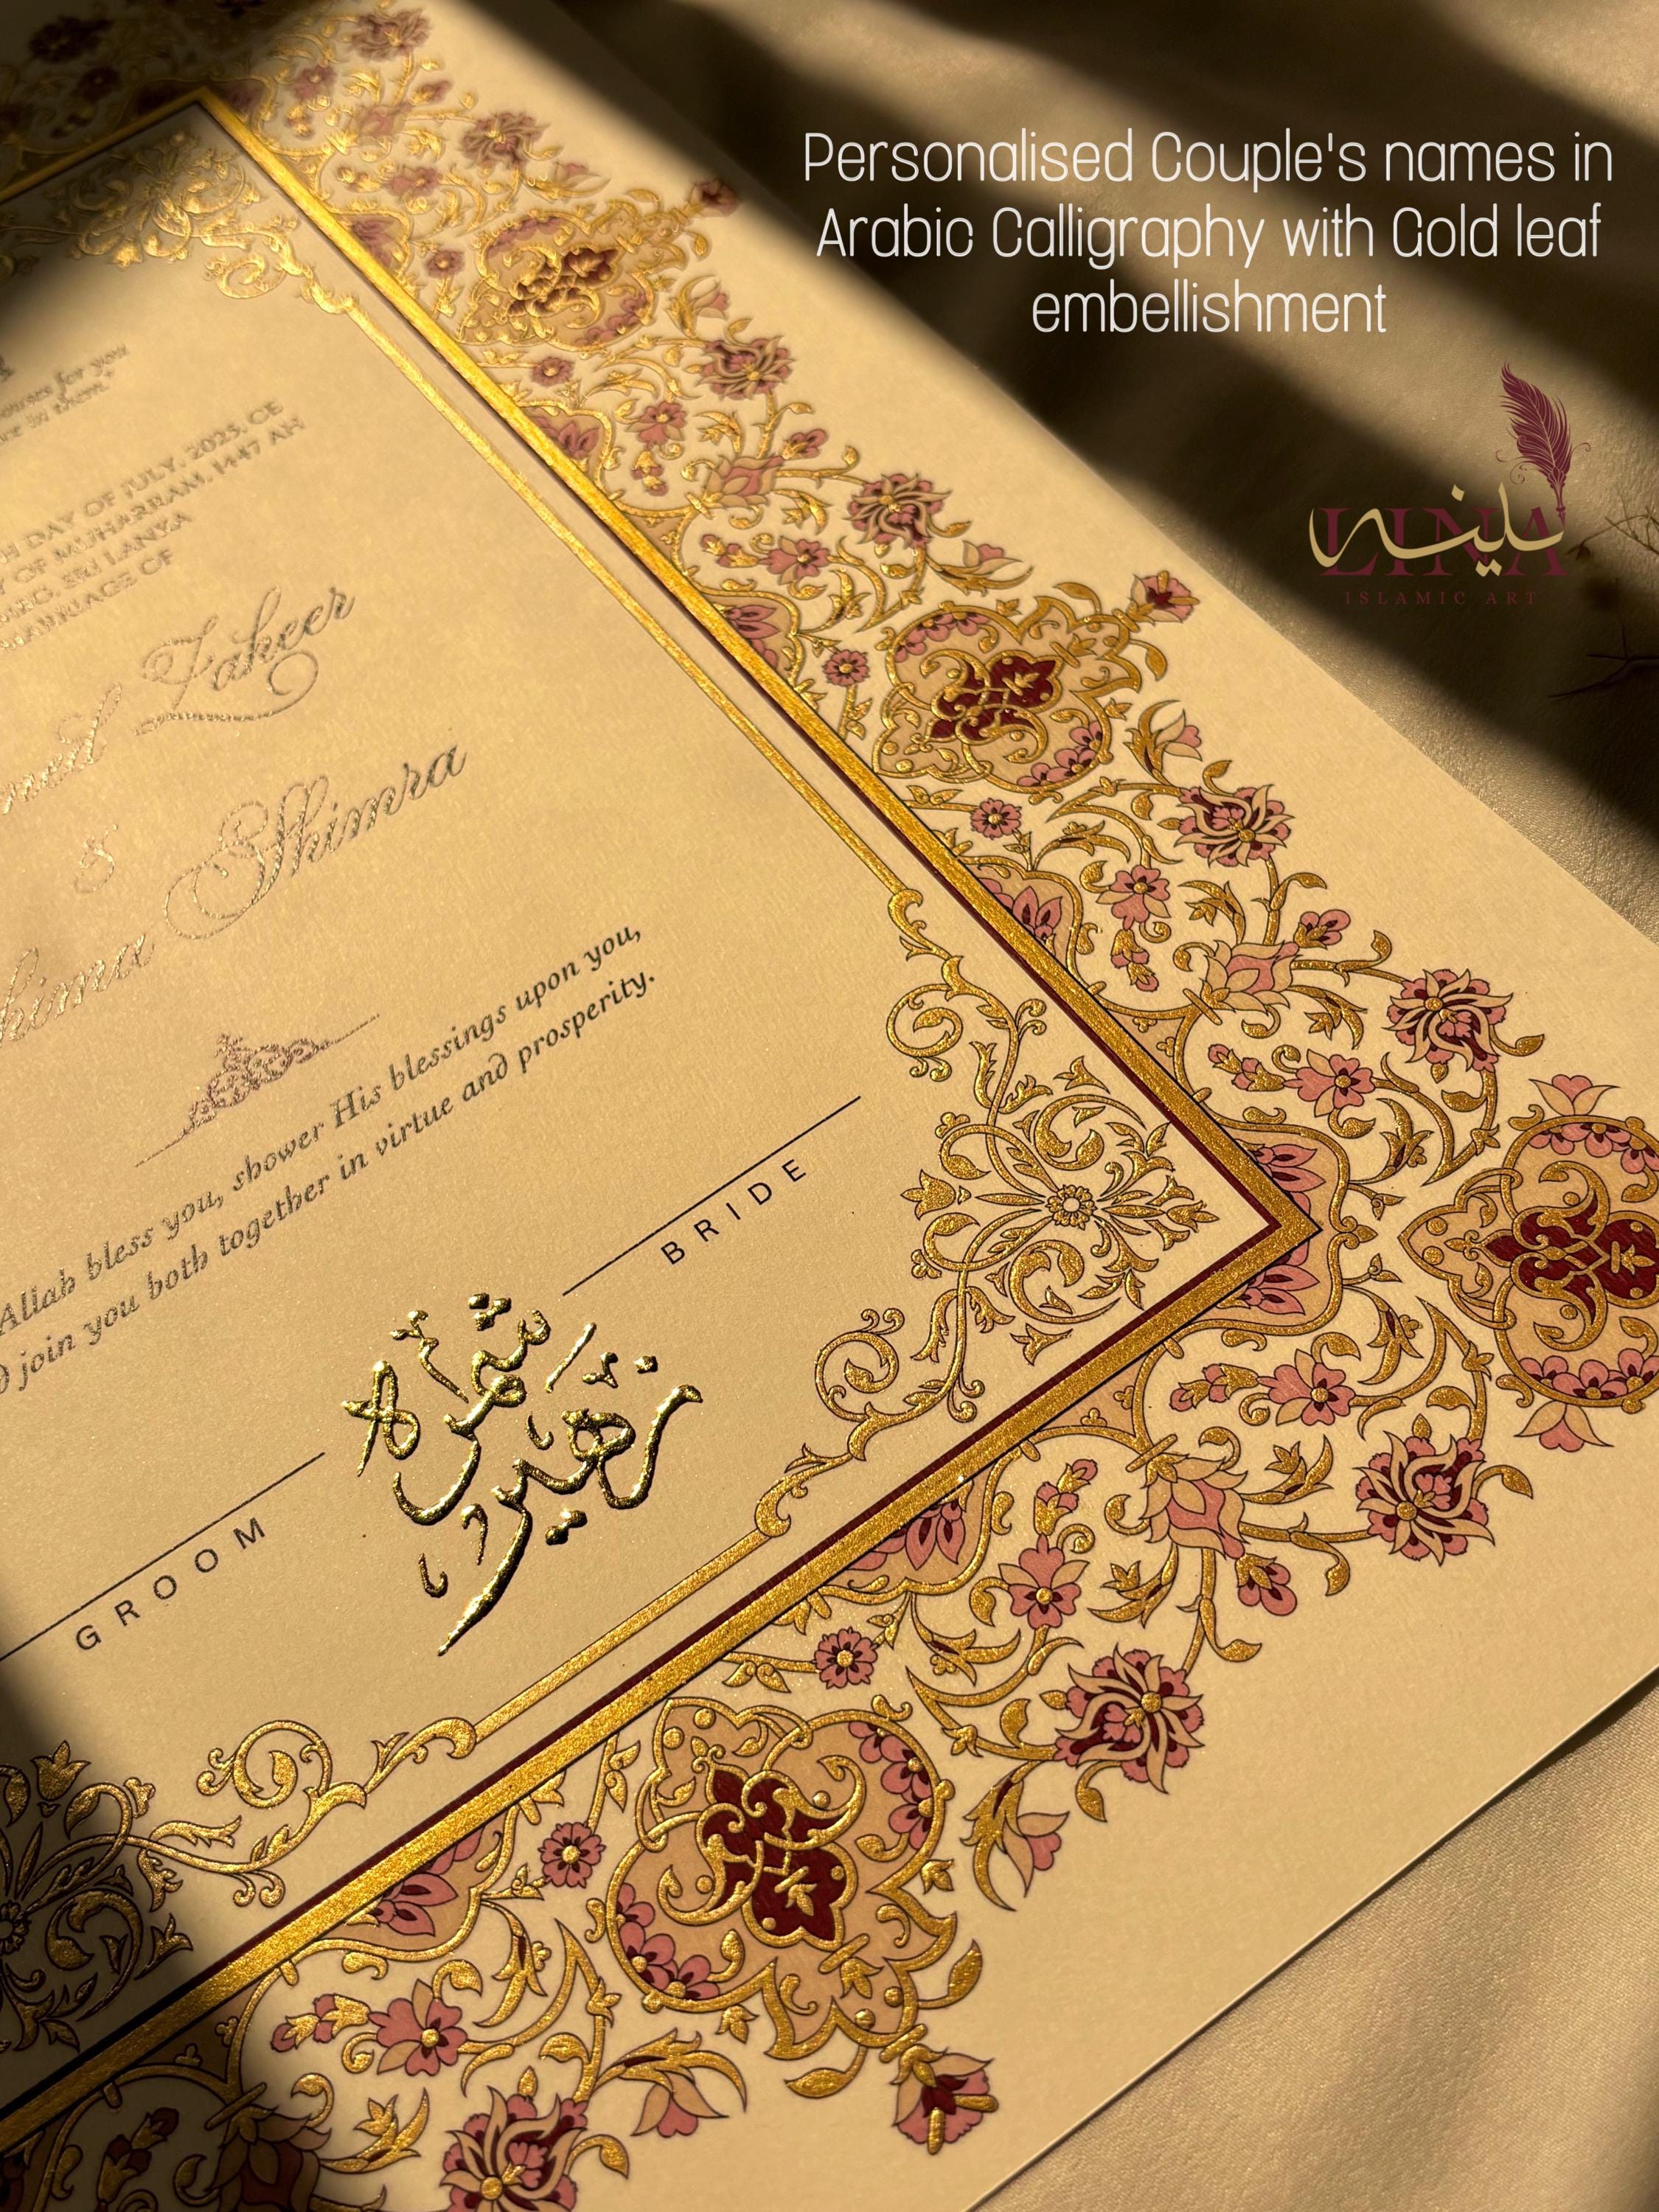 Personalised Couple's names in
Arabic Calligraphy with Gold leaf
embellishment
لينه
LINA
ISLAMIC ART
spouses for you
in them."
DAY OF JULY, 2025, CE
OF MUHARRAM, 1447 AH
SRI LANKA
MARRIAGE OF
Fakeer
&
Shimra
Allah bless you, shower His blessings upon you,
join you both together in virtue and prosperity.
BRIDE
GROOM